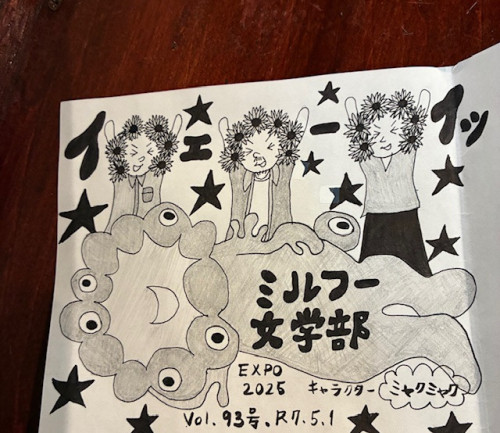 イェーイッ
ミルフー
文学部
EXPO
2025 キャラクター ミャクミャク
Vol.93号.R7.5.1